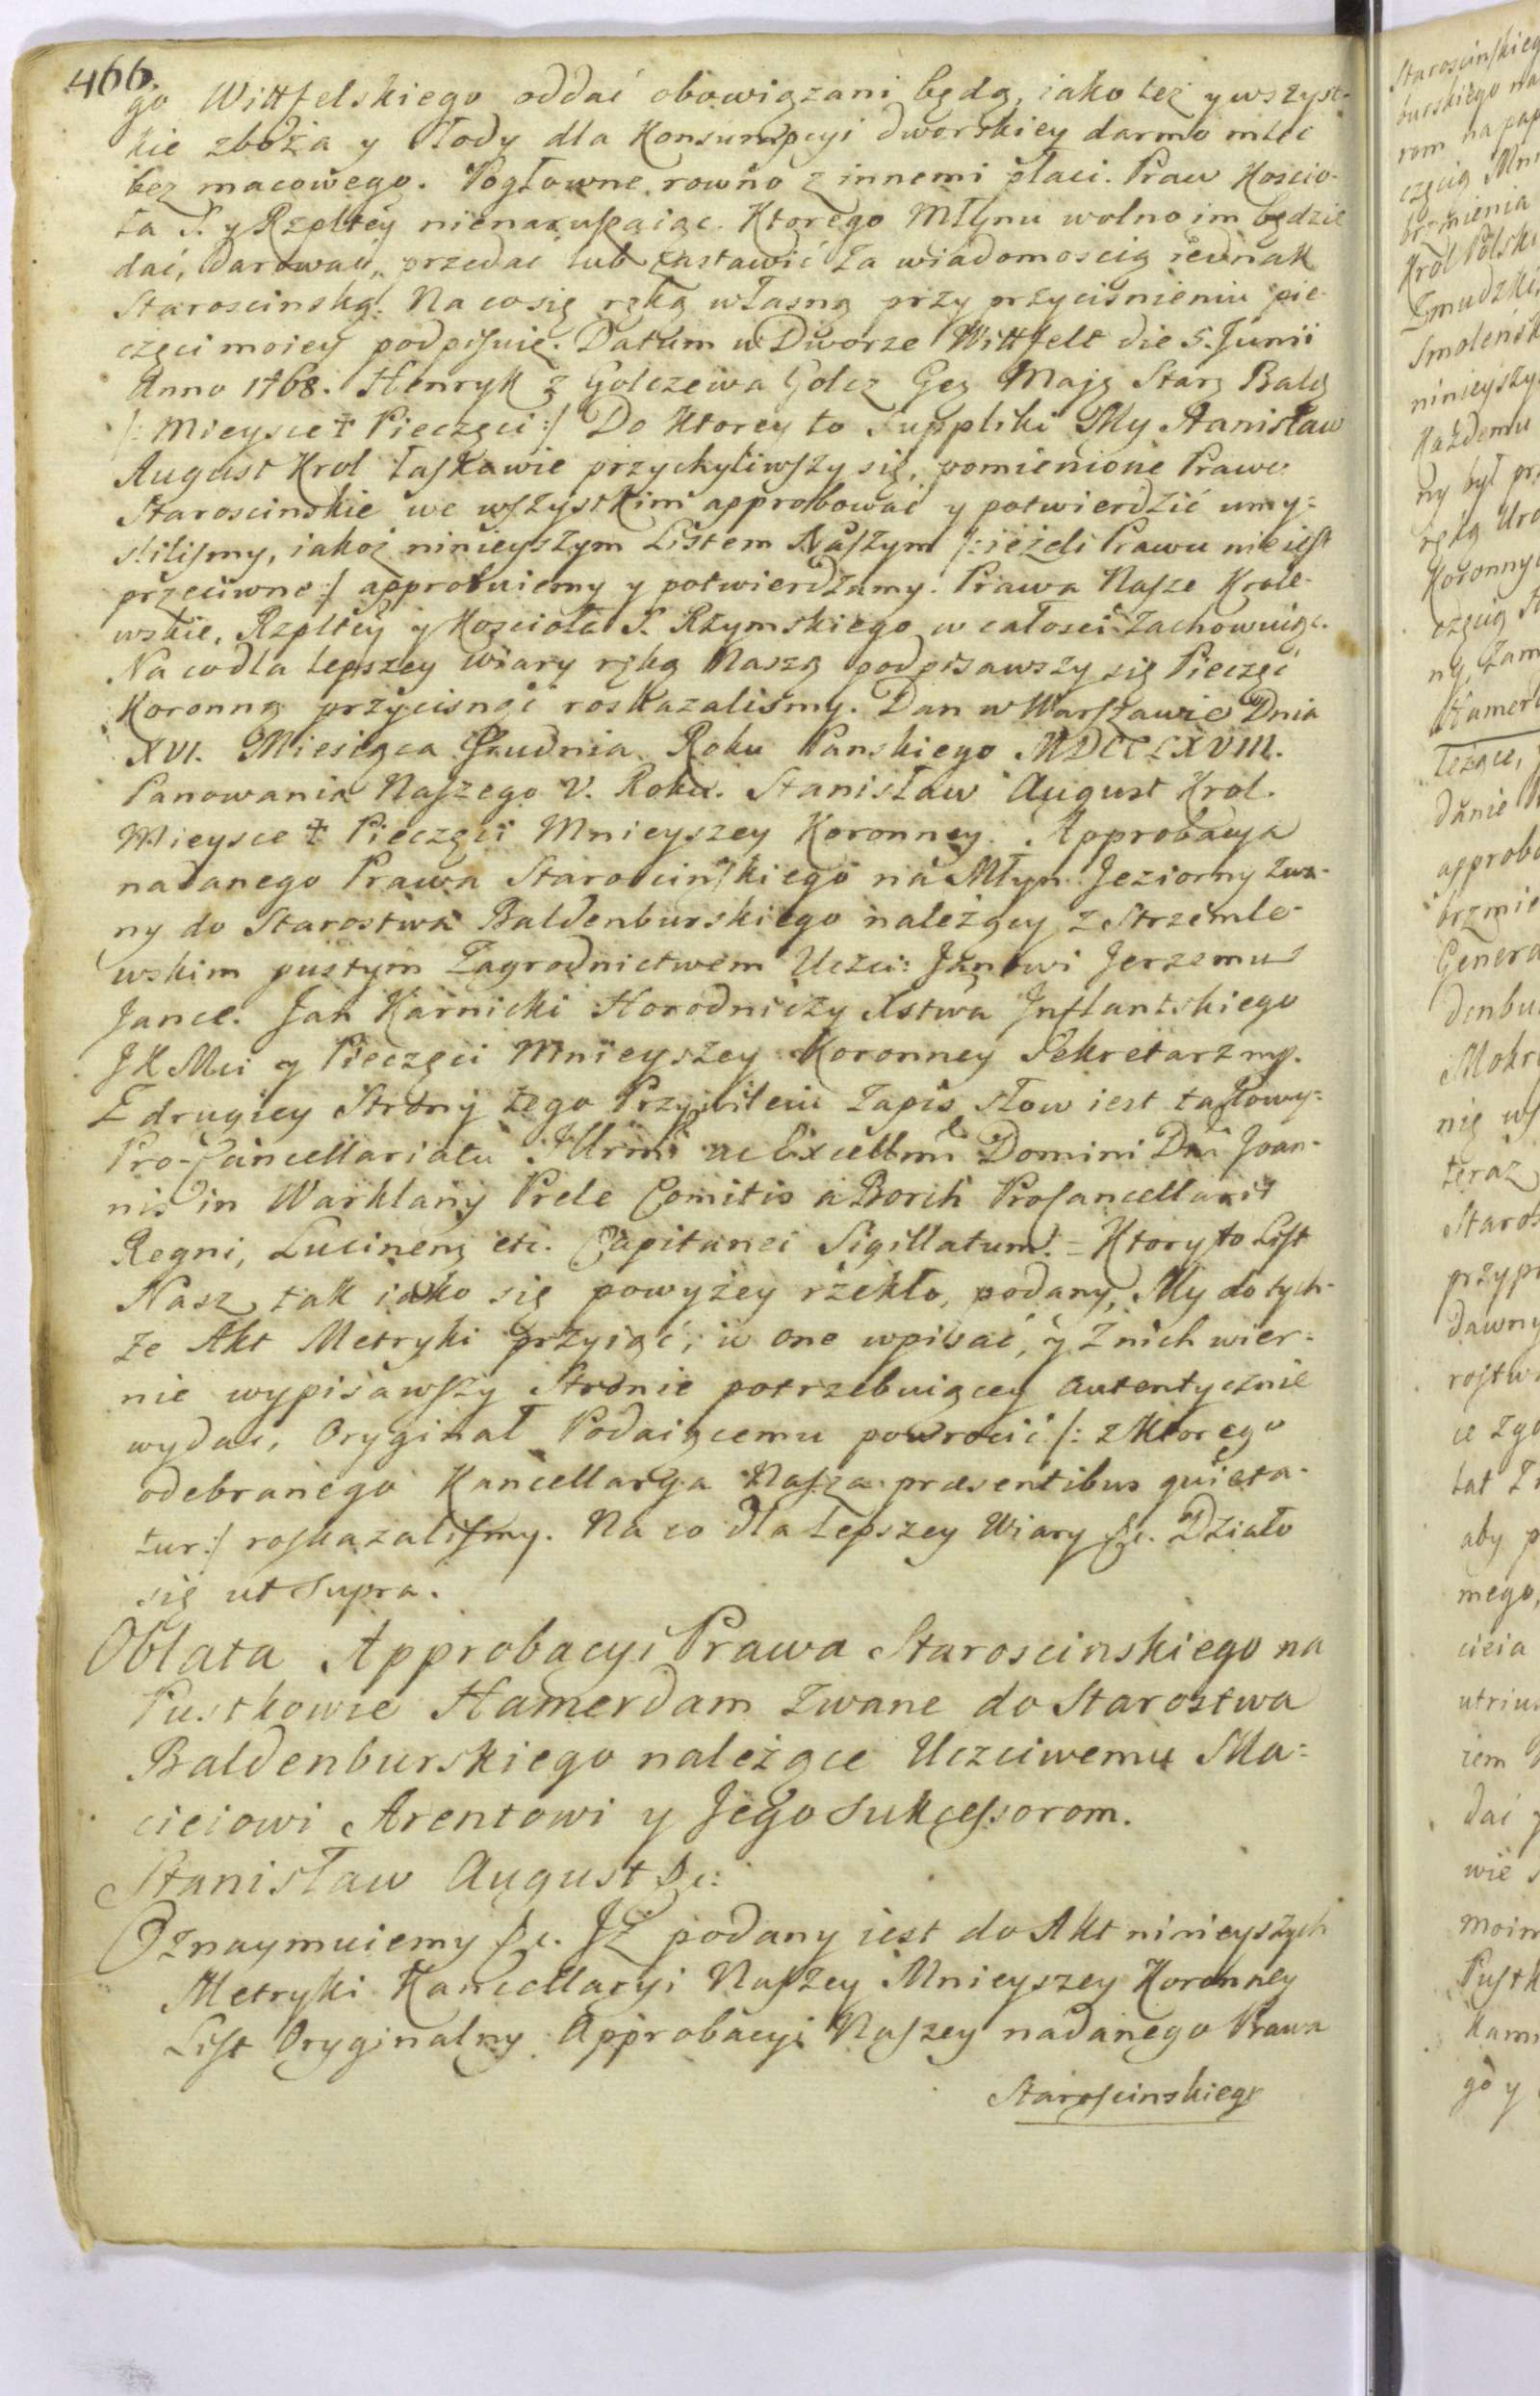 466.
go Wittfelskiego oddać obowiązani będą, iako też y wszyst-
kie zboża y Słody dla Konsumpcyi dworskiey darmo mleć
bez macowego. Pogłowne rowno z innemi płaci. Praw Koscio-
ła S. y Rzpltey nienaruszaiąc. Ktorego Młynu wolno im będzie
dać, darować, przedać lub zastawić za wiadomoscią iednak
Staroscinską. Na co się ręką własną przy przyciśnieniu pie-
częci moiey podpisuię. Datum w Dworze Wittfelt die 5. Junii
Anno 1768. Henryk z Golczewa Golcz Gez Mazg Starz Balg
/: Mieysce ‡ Pieczęci :/ Do Ktorey to Suppliki My Stanisław
August Krol łaskawie przychyliwszy się, pomienione Prawo
Staroscinskie we wszystkim approbować y potwierdzić umy=
slilismy, iakoż ninieyszym Listem Naszym /: ieżeli Prawu nie iest
przeciwne :/ approbuiemy y potwierdzamy. Prawa Nasze Krole-
wskie, Rzpltey y Kościoła S. Rzymskiego w całosci zachowuiąc.
Na co dla lepszey wiary ręką Naszą podpisawszy się Pieczęć
Koronną przycisnąć roskazalismy. Dan w Warszawie Dnia
XVI. Miesiąca Grudnia Roku Panskiego MDCCLXVIII.
Panowania Naszego V. Roku. Stanisław August Krol.
Mieysce ‡ Pieczęci Mnieyszey Koronney. Approbacya
nadanego Prawa Staroscinskiego na Młyn Jeziorny zwa-
ny do Starostwa Baldenburskiego należący z Strzemle-
wskim pustym Zagrodnictwem Uczci: Janowi Jerzemu
Jance. Jan Karnicki Horodniczy Xstwa Inflantskiego
JKMci y Pieczęci Mnieyszey Koronney Sekretarz mp.
Z drugiey Strony tego Przywileiu zapis słow iest takowy:
Pro-Cancellariatu Illrmi ac Excellmi Domini Dni Joan-
nis in Warklany Prele Comitis a Borch ProCancellarii
Regni, Lucinens etc. Capitanei Sigillatum. = Ktory to List
Nasz, tak iako się powyżey rzekło, podany, My do tych-
że Akt Metryki przyiąć, w one wpisać, y z nich wier-
nie wypisawszy Stronie potrzebuiącey autentycznie
wydać, Oryginał Podaiącemu powrocić /: z Ktorego
odebranego Kancellarya Nasza præsentibus quieta-
tur :/ roskazalismy. Na co dla lepszey Wiary &c. Działo
się ut Supra.
Oblata Approbacyi Prawa Staroscinskiego na
Pustkowie Hamerdam zwane do Starostwa
Baldenburskiego należące Uczciwemu Ma=
cieiowi Arentowi y Jego Sukcessorom.
Stanisław August &c:
Oznaymuiemy &c. Iż podany iest do Akt ninieyszych
Metryki Kancellaryi Naszey Mnieyszey Koronney
List Oryginalny Approbacyi Naszey nadanego Prawa
Staroscinskiego
Staroscinskieg
burskiego na
rom na pap
częcią Mn
brzmienia
Krol Polski
Zmudzki
Smolensk
ninieyszy
Każdemu
ny był prz
ręką Uro
Koronny
częcią
ną, zam
Hamerd
leżące,
danie
approb
brzmie
Genera
denbu
Mokr
nię ws
teraz
Staros
przypr
dawny
rostw
ce zgo
lat
aby p
mego,
cieia
utrius
iem
dać y
wie s
moim
Pustk
Hamm
gdy